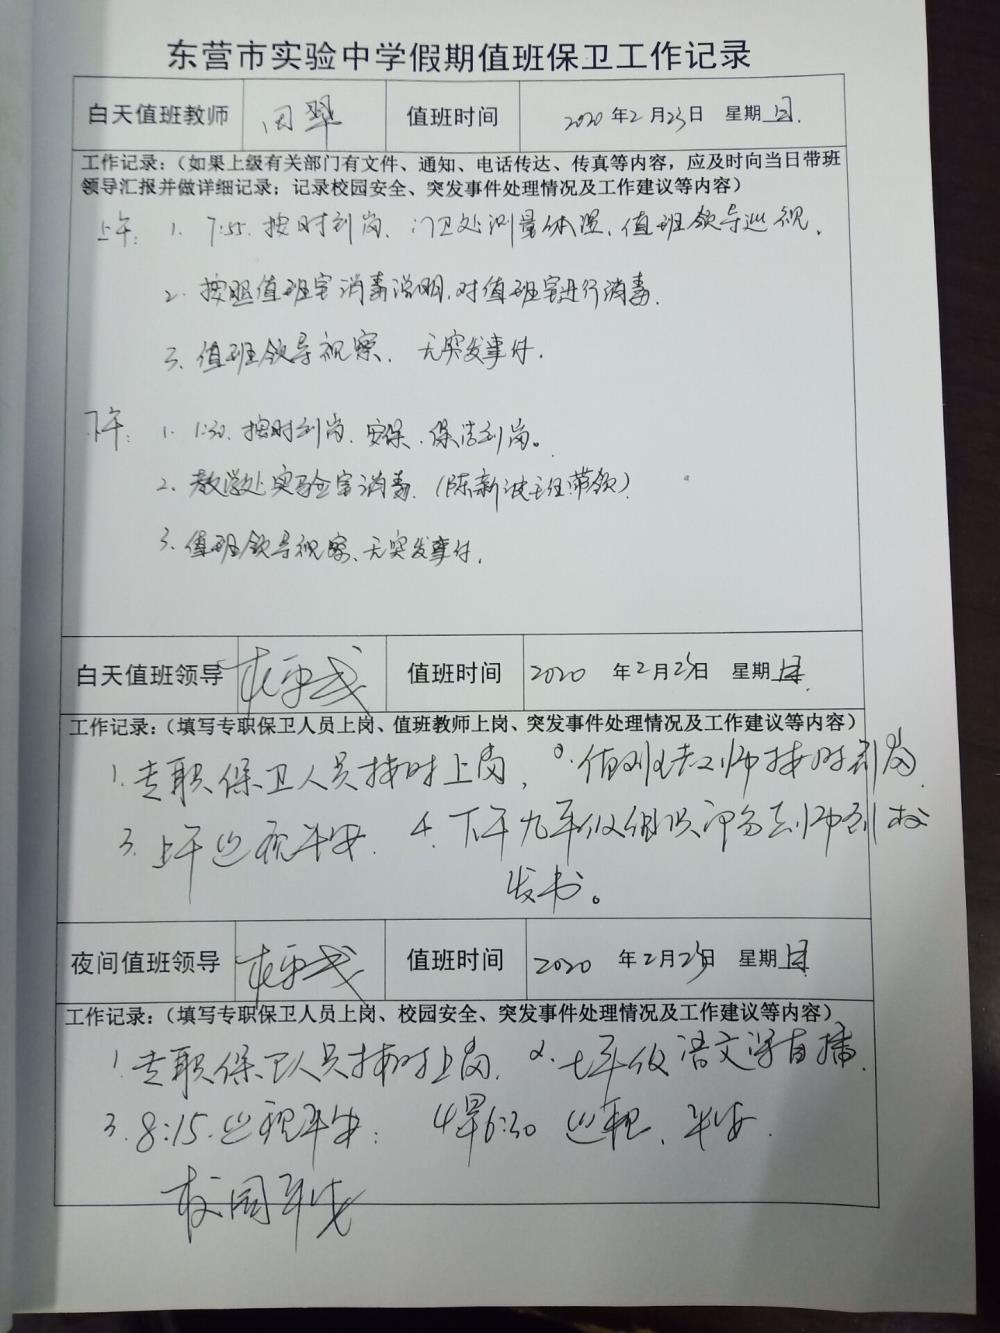 东营市实验中学假期值班保卫工作记录
白天值班教师 值班时间 2020年2月23日 星期日.
工作记录:(如果上级有关部门有文件、通知、电话传达、传真等内容，应及时向当日带班
领导汇报并做详细记录；记录校园安全、突发事件处理情况及工作建议等内容)
上午: 1. 7:55. 按时到岗. 门卫处测量体温. 值班领导巡视.
2. 按照值班室消毒说明, 对值班室进行消毒.
3. 值班领导视察. 无突发事件.
下午: 1. 1:30. 按时到岗. 安保. 保洁到岗。
2. 教学处实验室消毒. (陈新波主任带领)
3. 值班领导视察、无突发事件.
白天值班领导 值班时间 2020年2月23日 星期日.
工作记录:(填写专职保卫人员上岗、值班教师上岗、突发事件处理情况及工作建议等内容)
1. 专职保卫人员按时上岗, 2. 值班老师按时到岗
3. 上午巡视平安. 4. 下午九年级组织部分老师到校
发书。
夜间值班领导 值班时间 2020年2月23日 星期日
工作记录:(填写专职保卫人员上岗、校园安全、突发事件处理情况及工作建议等内容)
1. 专职保卫人员按时上岗. 2. 七年级语文课直播.
3. 8:15. 巡视平安; 4 早6:30 巡视、平安.
校园平安